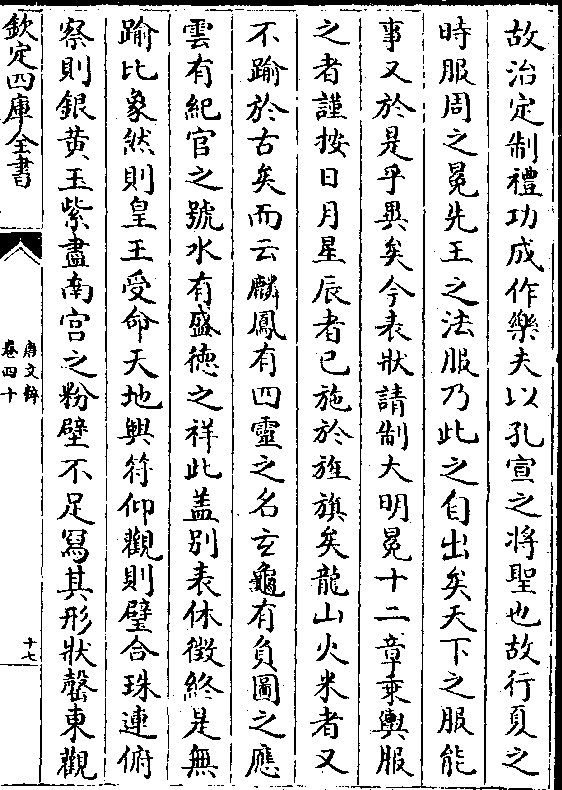 故治定制禮功成作樂夫以孔宣之將聖也故行夏之
時服周之冕先王之法服乃此之自出矣天下之服能
事又於是乎異矣今表狀請制大明冕十二章乘輿服
之者謹按日月星辰者已施於旌旗矣龍山火米者又
不踰於古矣而云麟鳳有四靈之名玄龜有負圖之應
雲有紀官之號水有盛德之祥此盖別表休徵終是無
踰比象然則皇王受命天地興符仰觀則璧合珠連俯
察則銀黄玉紫盡南宫之粉壁不足冩其形狀罄東觀
欽定四庫全書
唐文粹
卷四十
十七